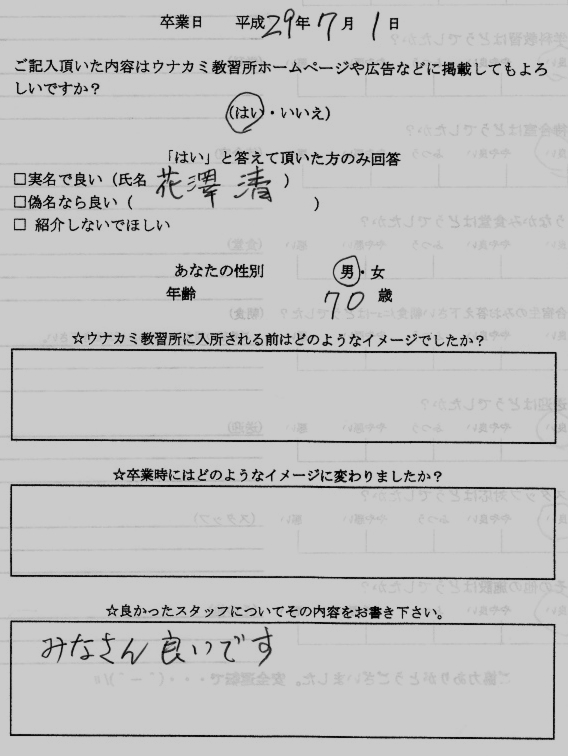 卒業日 平成29年7月1日
ご記入頂いた内容はウナカミ教習所ホームページや広告などに掲載してもよろ
しいですか?
(はい・いいえ)
「はい」と答えて頂いた方のみ回答
□実名で良い(氏名 花澤 清 )
□偽名なら良い( )
□ 紹介しないでほしい
あなたの性別 男・女
年齢 70 歳
☆ウナカミ教習所に入所される前はどのようなイメージでしたか?
☆卒業時にはどのようなイメージに変わりましたか?
☆良かったスタッフについてその内容をお書き下さい。
みなさん良いです